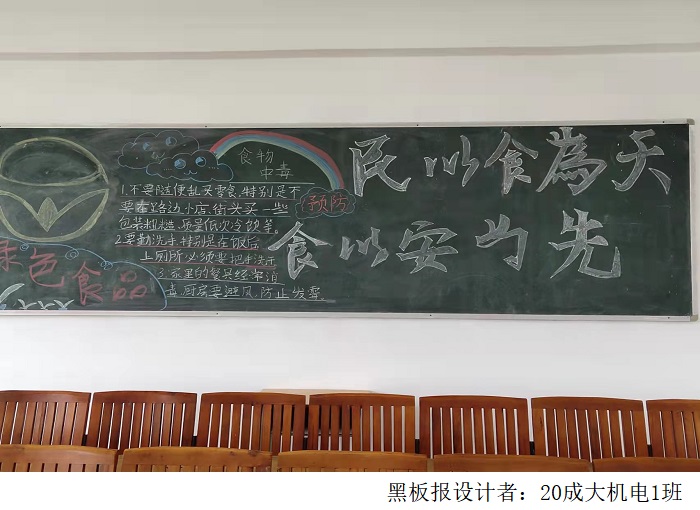 民以食為天
食以安为先
食物
中毒
预防
1.不要随便乱买零食,特别是不
要在路边小店,街头买一些
包装粗糙、质量低次冷饮等。
2.要勤洗手,特别是在饭后
上厕所必须要把手洗干
3.家里的餐具经常消
毒,厨房要避风,防止发霉
绿色食品
黑板报设计者：20成大机电1班